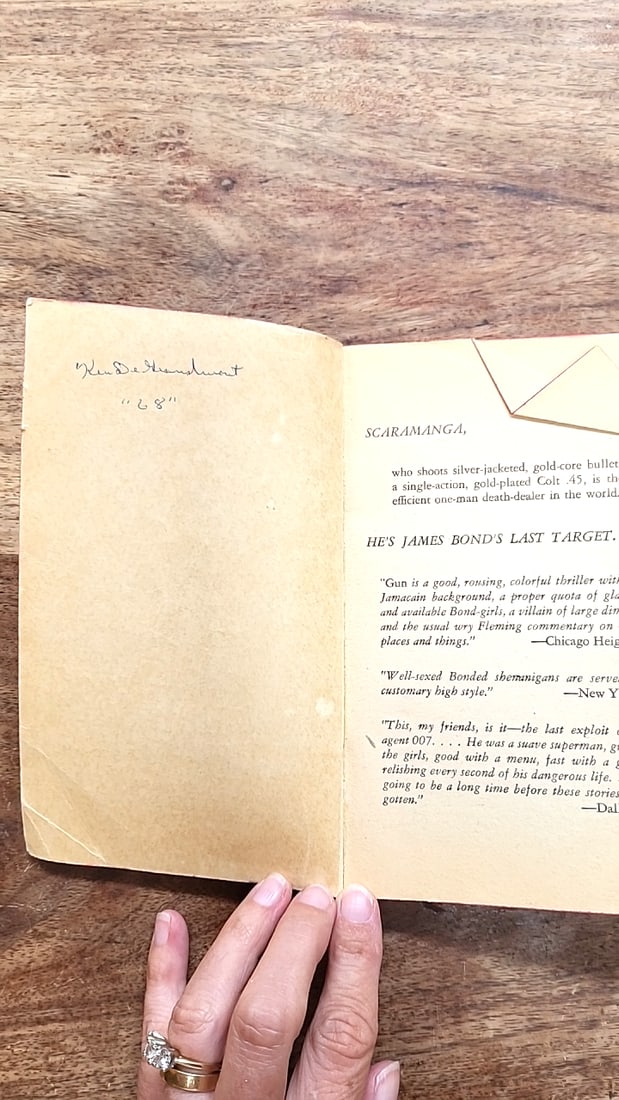 "Ken De
"68"
SCARAMANGA,
who shoots silver-jacketed, gold-core bullet
a single-action, gold-plated Colt .45, is th
efficient one-man death-dealer in the world.
HE'S JAMES BOND'S LAST TARGET.
"Gun is a good, rousing, colorful thriller wit
Jamacain background, a proper quota of gla
and available Bond-girls, a villain of large dim
and the usual wry Fleming commentary on
places and things." —Chicago Heig
"Well-sexed Bonded shenanigans are serve
customary high style." —New Y
"This, my friends, is it—the last exploit o
agent 007. . . . He was a suave superman, g
the girls, good with a menu, fast with a g
relishing every second of his dangerous life.
going to be a long time before these stories
gotten." —Dal